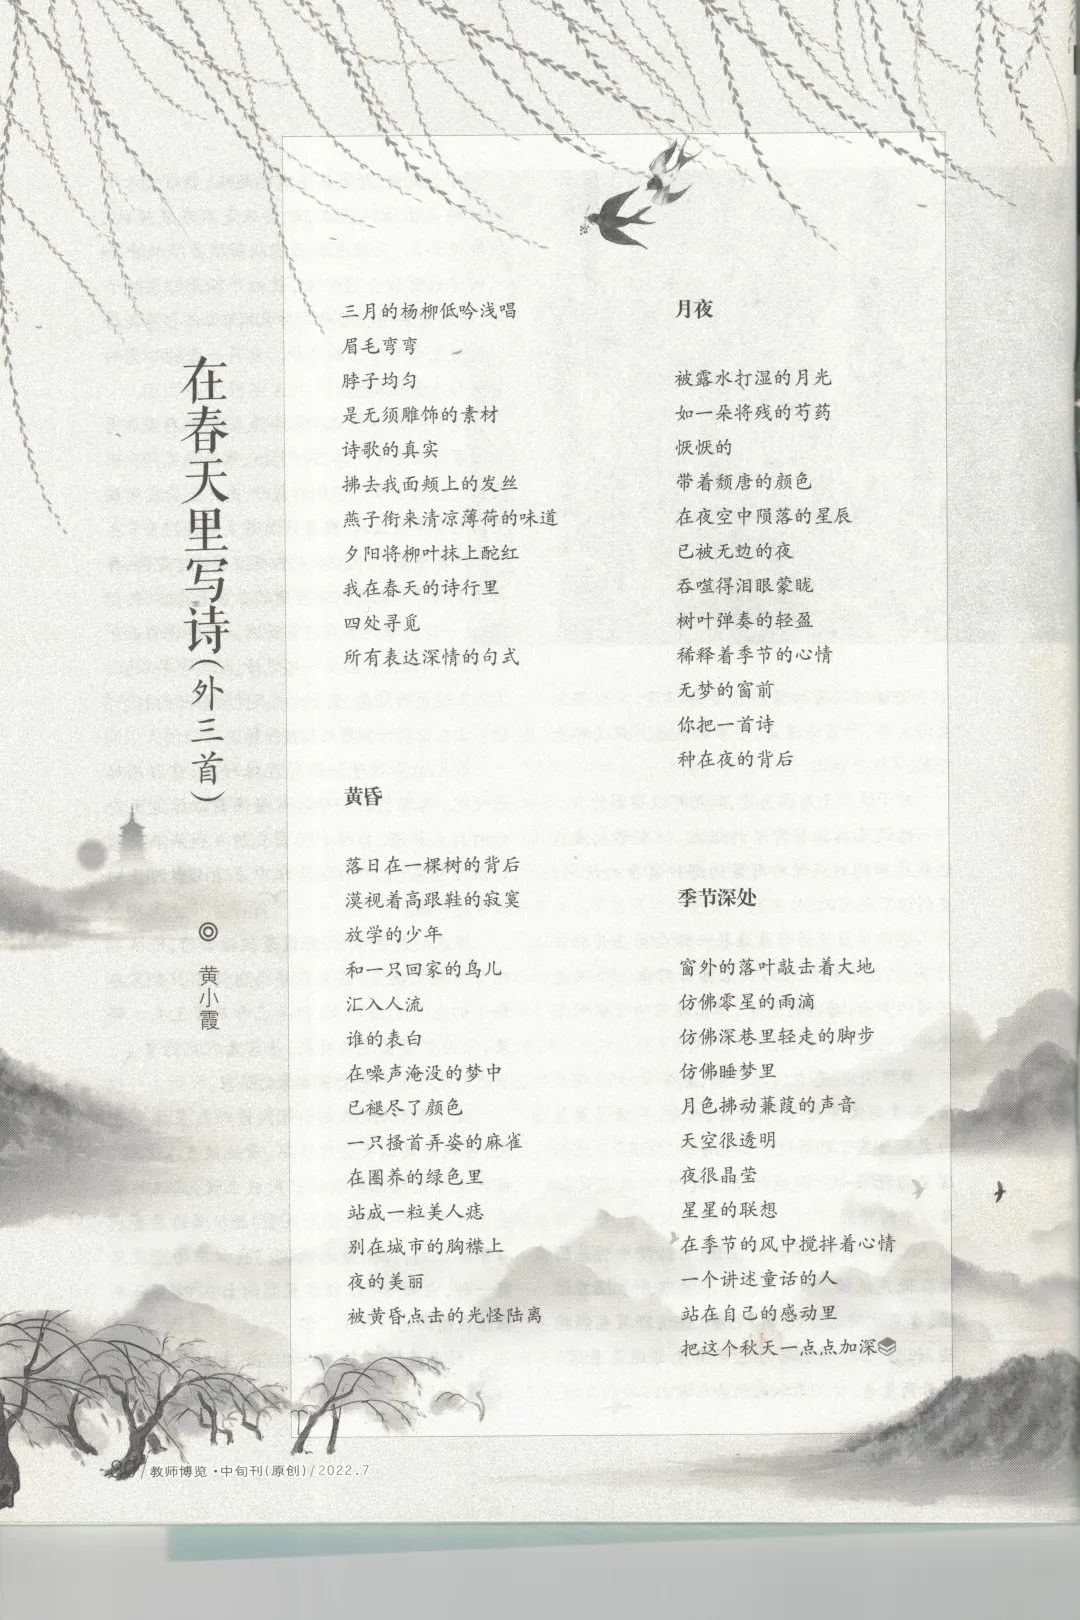 在春天里写诗(外三首)
◎
黄小霞
三月的杨柳低吟浅唱
眉毛弯弯
脖子均匀
是无须雕饰的素材
诗歌的真实
拂去我面颊上的发丝
燕子衔来清凉薄荷的味道
夕阳将柳叶抹上酡红
我在春天的诗行里
四处寻觅
所有表达深情的句式
黄昏
落日在一棵树的背后
漠视着高跟鞋的寂寞
放学的少年
和一只回家的鸟儿
汇入人流
谁的表白
在噪声淹没的梦中
已褪尽了颜色
一只搔首弄姿的麻雀
在圈养的绿色里
站成一粒美人痣
别在城市的胸襟上
夜的美丽
被黄昏点击的光怪陆离
月夜
被露水打湿的月光
如一朵将残的芍药
恹恹的
带着颓唐的颜色
在夜空中陨落的星辰
已被无边的夜
吞噬得泪眼蒙眬
树叶弹奏的轻盈
稀释着季节的心情
无梦的窗前
你把一首诗
种在夜的背后
季节深处
窗外的落叶敲击着大地
仿佛零星的雨滴
仿佛深巷里轻走的脚步
仿佛睡梦里
月色拂动蒹葭的声音
天空很透明
夜很晶莹
星星的联想
在季节的风中搅拌着心情
一个讲述童话的人
站在自己的感动里
把这个秋天一点点加深
80/教师博览·中旬刊(原创)/2022.7